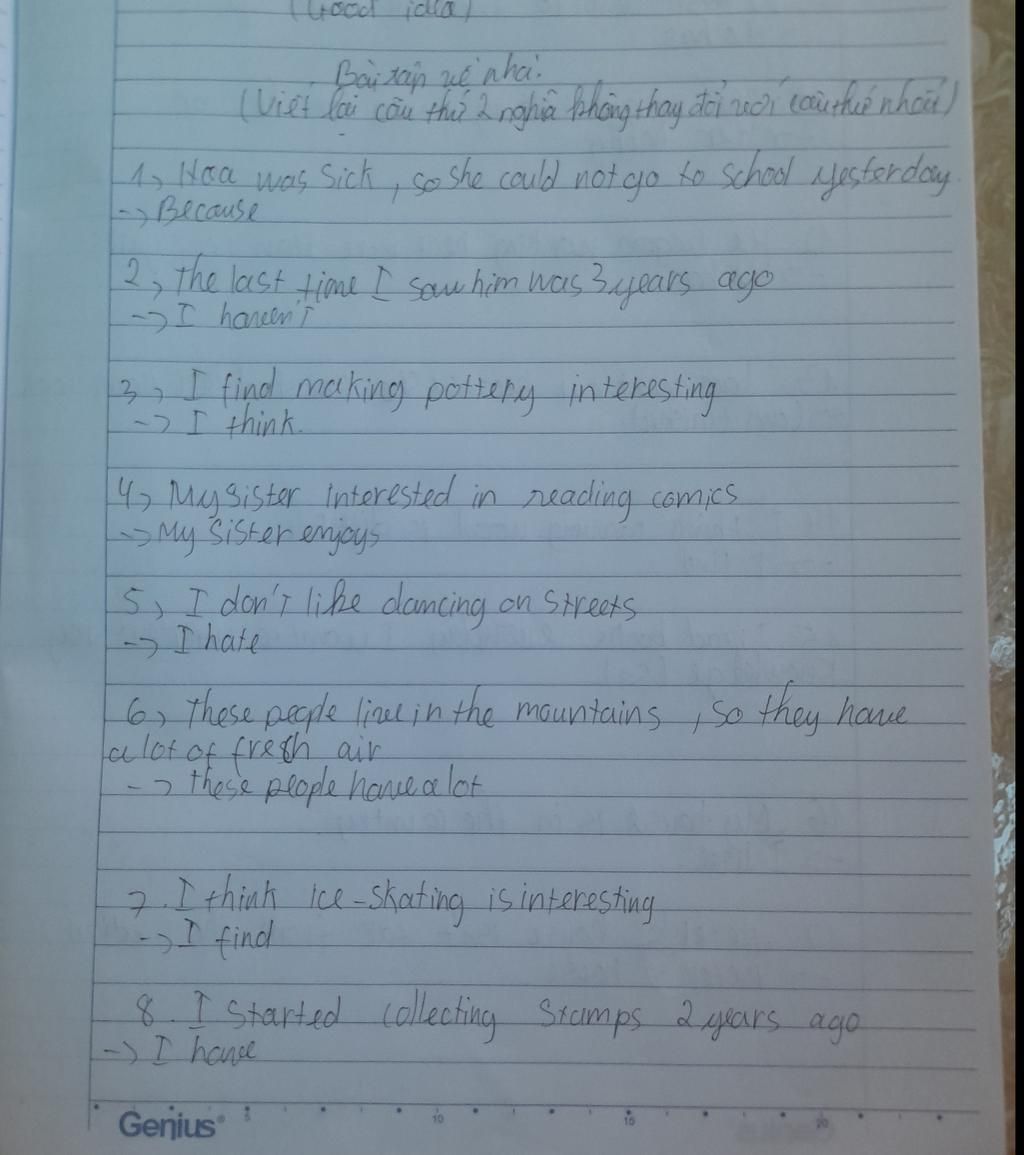 (Good idea)
Bài tập về nhà.
(Viết lại câu thứ 2 nghĩa không thay đổi với câu thứ nhất)
1, Hoa was sick, so she could not go to school yesterday.
-> Because
2, The last time I saw him was 3 years ago
-> I haven't
3, I find making pottery interesting
-> I think.
4, My sister interested in reading comics
-> My sister enjoys
5, I don't like dancing on streets
-> I hate
6, These people live in the mountains, so they have
a lot of fresh air
-> these people have a lot
7. I think ice-skating is interesting
-> I find
8. I started collecting stamps 2 years ago
-> I have
5 10 15 20
Genius